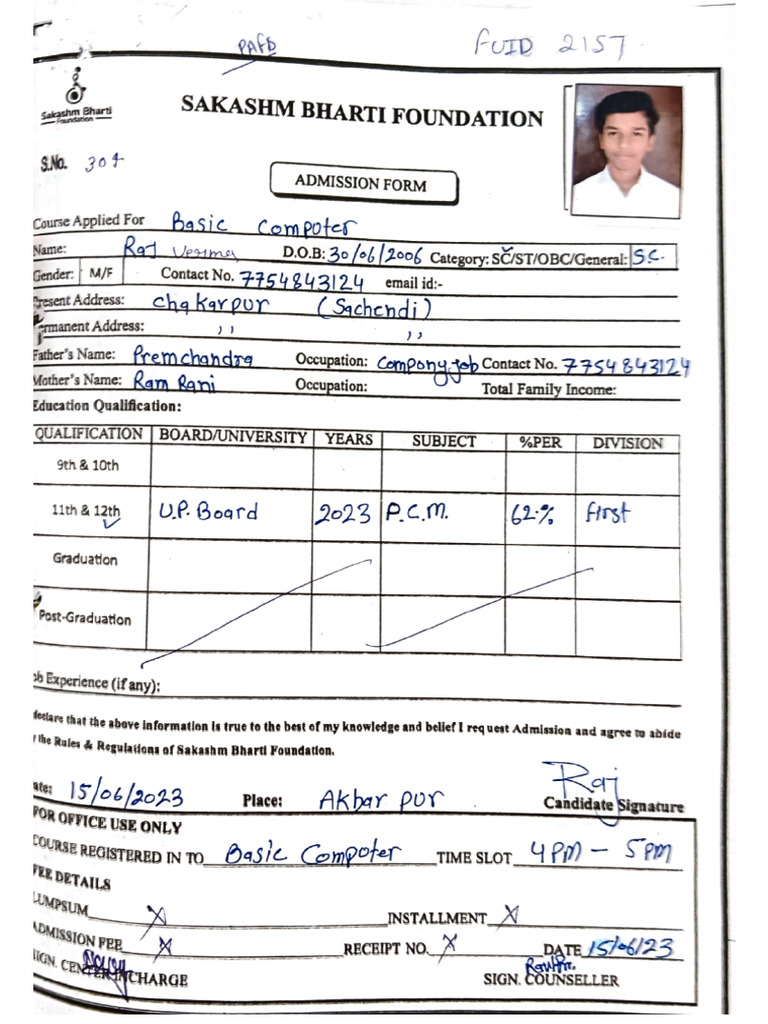 PAFD
FUID 2157
Sakashm Bharti
Foundation
SAKASHM BHARTI FOUNDATION
S.No. 304
ADMISSION FORM
Course Applied For Basic Computer
Name: Raj Verma D.O.B: 30/06/2006 Category: SC/ST/OBC/General: S.C.
Gender: M/F Contact No. 7754843124 email id:-
Present Address: Chakarpur (Sachendi)
rmanent Address: ,, ,,
Father's Name: Premchandra Occupation: Compony job Contact No. 7754843124
Mother's Name: Ram Rani Occupation: Total Family Income:
Education Qualification:
QUALIFICATION BOARD/UNIVERSITY YEARS SUBJECT %PER DIVISION
9th & 10th
11th & 12th U.P. Board 2023 P.C.M. 62.% first
Graduation
Post-Graduation
ob Experience (if any):
declare that the above information is true to the best of my knowledge and belief I request Admission and agree to abide
the Rules & Regulations of Sakashm Bharti Foundation.
ate: 15/06/2023 Place: Akbar pur Raj
Candidate Signature
FOR OFFICE USE ONLY
COURSE REGISTERED IN TO Basic Computer TIME SLOT 4 PM – 5 PM
FEE DETAILS
LUMPSUM X INSTALLMENT X
ADMISSION FEE X RECEIPT NO. X DATE 15/06/23
SIGN. CENTER INCHARGE SIGN. COUNSELLER